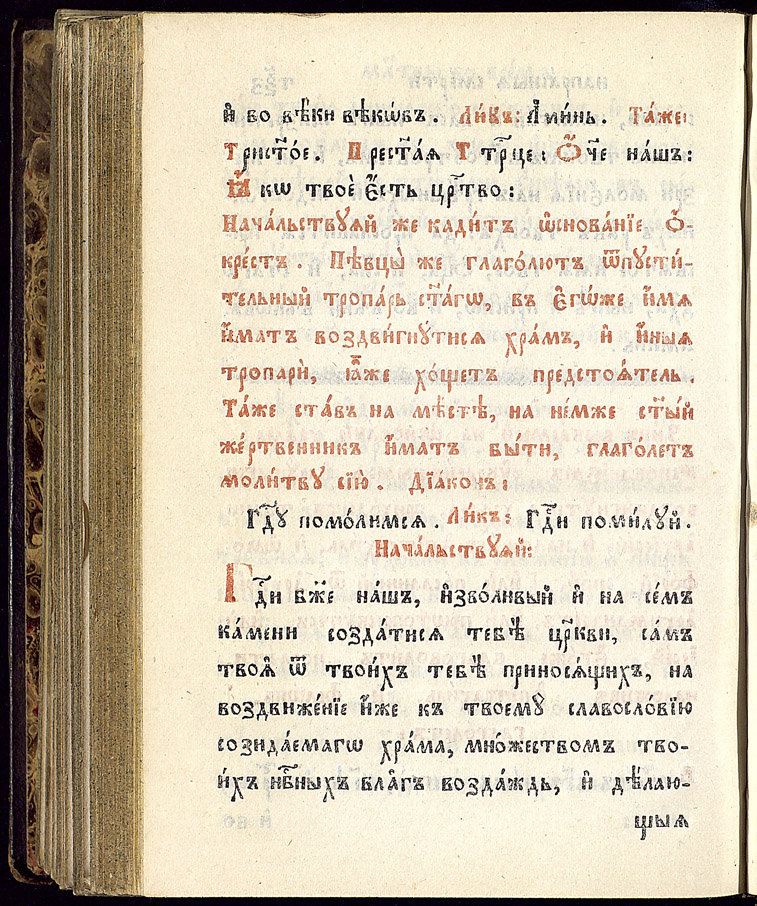 и҆ во вѣ́ки вѣкѡ́въ. Ли́къ: А҆ми́нь. Та́же:
Трист҃о́е. Прест҃а́ѧ Трⷪ҇це: Ѻ҆́ч҃е на́шъ:
Ꙗ҆́кѡ твоѐ є҆́сть црⷭ҇тво:
Нача́льствꙋѧй же кади́тъ ѡ҆снова́нїе ѻ҆́-
кре́стъ. Пѣвцы̀ же глаго́лютъ ѿпꙋсти́-
тельный тропа́рь ст҃а́гѡ, въ є҆гѡ́же и҆́мѧ
и҆́матъ воздви́гнꙋтисѧ хра́мъ, и҆ и҆́ныѧ
тропарѝ, ꙗ҆̀же хо́щетъ предстоѧ́тель.
Та́же ста́въ на мѣ́стѣ, на не́мже ст҃ы́й
же́ртвенникъ и҆́матъ бы́ти, глаго́летъ
моли́твꙋ сїю̀. Дїа́конъ:
Гдⷭ҇ꙋ помо́лимсѧ. Ли́къ: Гдⷭ҇и поми́лꙋй.
Нача́льствꙋѧй:
Гдⷭ҇и бж҃е на́шъ, и҆зво́ливый и҆ на се́мъ
ка́мени созда́тисѧ тебѣ̀ цр҃кви, са́мъ
твоѧ̑ ѿ твои́хъ тебѣ̀ приносѧ́щихъ, на
воздвиже́нїе и҆́же къ твоемꙋ̀ славосло́вїю
созида́емагѡ хра́ма, мно́жествомъ тво-
и́хъ нбⷭ҇ныхъ бла̑гъ возда́ждь, и҆ дѣ́лаю-
щыѧ